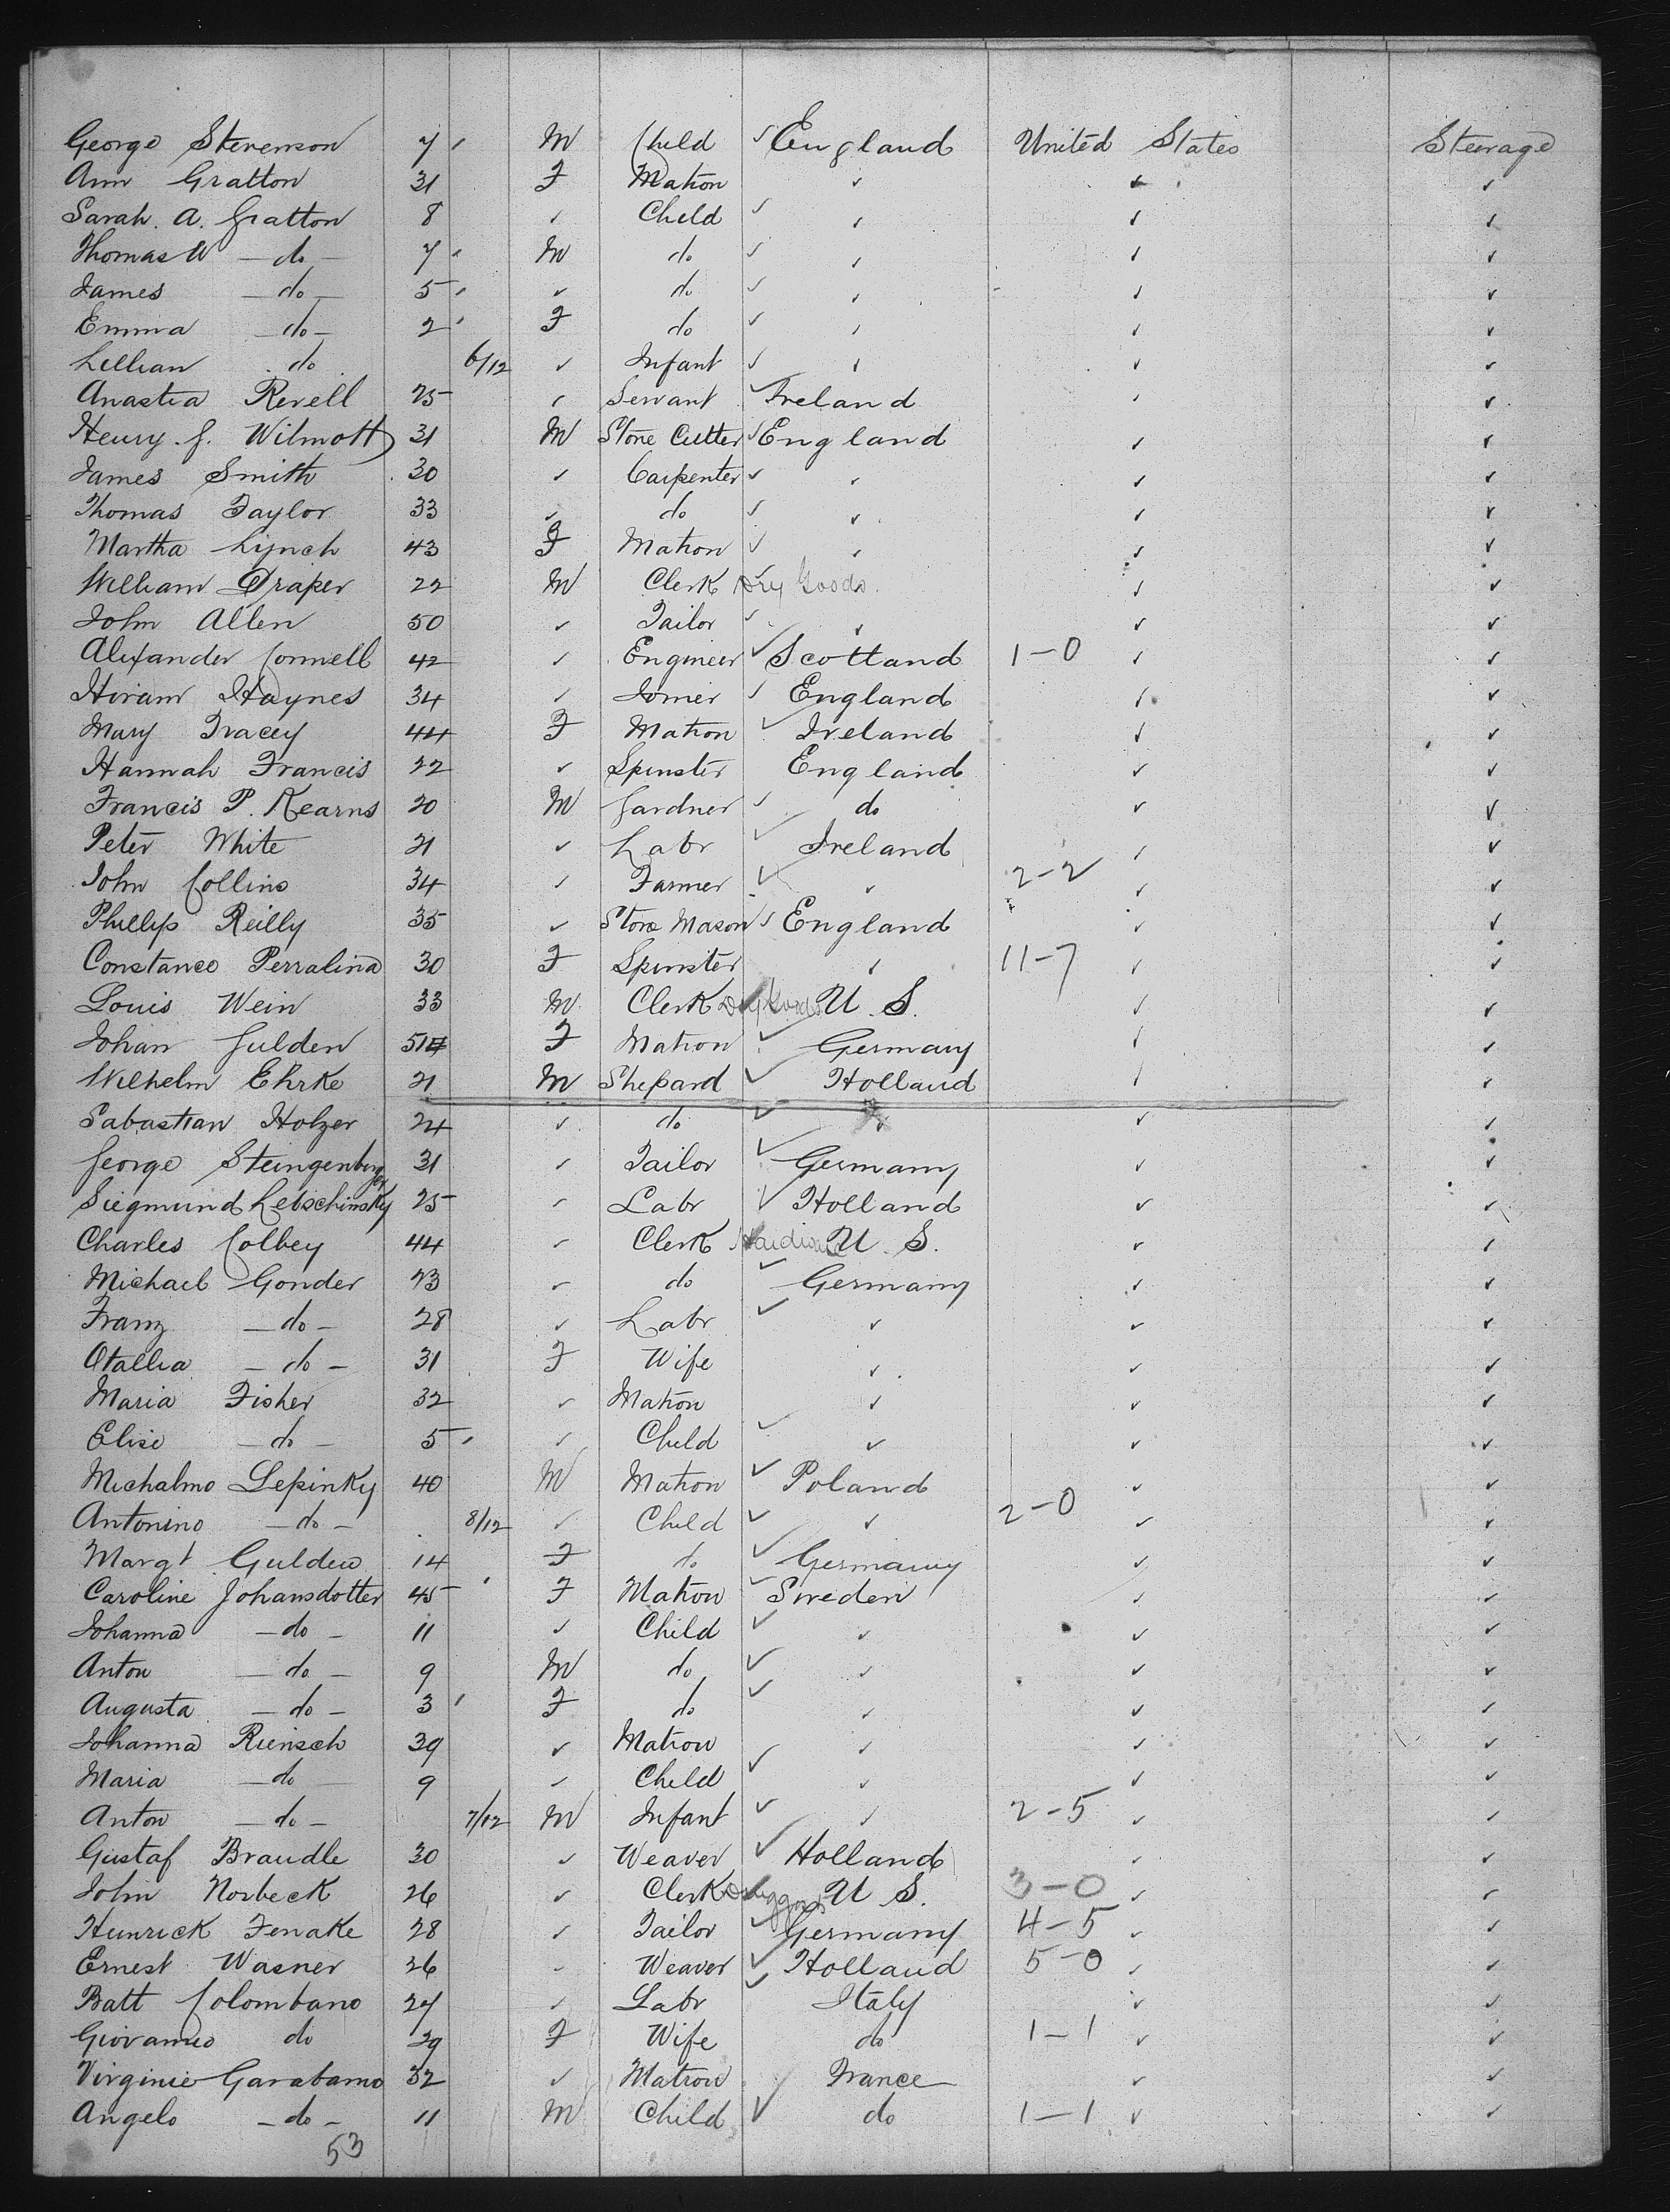 George Stevenson 7 ′ M Child ✓ England United States Steerage
Ann Gratton 31 F Matron ✓ ✓ ✓
Sarah. A. Gratton 8 ✓ Child ✓ ✓ ✓ ✓
Thomas W — do — 7 ′ M do ✓ ✓ ✓ ✓
James — do — 5 ′ ✓ do ✓ ✓ ✓ ✓
Emma — do — 2 ′ F do ✓ ✓ ✓ ✓
Lillian do 6/12 ✓ Infant ✓ ✓ ✓ ✓
Anastia Revell 25 ✓ Servant ✓ Ireland ✓ ✓
Henry J. Wilmott 31 M Stone Cutter ✓ England ✓ ✓
James Smith 30 ✓ Carpenter ✓ ✓ ✓ ✓
Thomas Taylor 33 ✓ do ✓ ✓ ✓ ✓
Martha Lynch 43 F Matron ✓ ✓ ✓ ✓
William Draper 22 M Clerk Dry Goods ✓ ✓
John Allen 50 ✓ Tailor ✓ ✓ ✓ ✓
Alexander Connell 42 ✓ Engineer ✓ Scotland 1-0 ✓ ✓
Hiram Haynes 34 ✓ Joiner ✓ England ✓ ✓
Mary Tracey 44 F Matron ✓ Ireland ✓ ✓
Hannah Francis 22 ✓ Spinster England ✓ ✓
Francis P. Kearns 20 M Gardner ✓ do ✓ ✓
Peter White 21 ✓ Labr ✓ Ireland ✓ ✓
John Collins 34 ✓ Farmer ✓ ✓ 2-2 ✓ ✓
Phillip Reilly 35 ✓ Stone Mason ✓ England ✓ ✓
Constance Perralina 30 F Spinster ✓ 11-7 ✓ ✓
Louis Wein 33 M Clerk Dry Goods ✓ U. S. ✓ ✓
Johan Gulden 51 F Matron ✓ Germany ✓ ✓
Wilhelm Ehrke 21 M Shepard ✓ Holland ✓ ✓
Sabastian Holzer 24 ✓ do ✓ ✓ ✓ ✓
George Steingenberger 31 ✓ Tailor ✓ Germany ✓ ✓
Siegmund Lebschinsky 25 ✓ Labr ✓ Holland ✓ ✓
Charles Colbey 44 ✓ Clerk U. S. ✓ ✓
Michael Gonder 23 ✓ do ✓ Germany ✓ ✓
Franz — do — 28 ✓ Labr ✓ ✓ ✓ ✓
Otallia — do — 31 F Wife ✓ ✓ ✓
Maria Fisher 32 ✓ Matron ✓ ✓ ✓
Elise — do — 5 ′ ✓ Child ✓ ✓ ✓ ✓
Michalmo Lepinky 40 M Matron ✓ Poland ✓ ✓
Antonino — do — 8/12 ✓ Child ✓ ✓ 2-0 ✓ ✓
Margt Gulden 14 F do ✓ Germany ✓ ✓
Caroline Johansdotter 45 ′ F Matron ✓ Sweden ✓ ✓
Johanna — do — 11 ✓ Child ✓ ✓ ✓ ✓
Anton — do — 9 M do ✓ ✓ ✓ ✓
Augusta — do — 3 ′ F do ✓ ✓ ✓ ✓
Johanna Riensch 39 ✓ Matron ✓ ✓ ✓
Maria — do — 9 ✓ Child ✓ ✓ ✓ ✓
Anton — do — 7/12 M Infant ✓ ✓ 2-5 ✓ ✓
Gustaf Braudle 30 ✓ Weaver ✓ Holland ✓ ✓
John Norbeck 26 ✓ Clerk ✓ U S. 3-0 ✓ ✓
Heinrick Fenake 28 ✓ Tailor ✓ Germany 4-5 ✓ ✓
Ernest Wasner 26 ✓ Weaver ✓ Holland 5-0 ✓ ✓
Batt Colombano 27 ✓ Labr ✓ Italy ✓ ✓
Giovanno do 29 F Wife do 1-1 ✓ ✓
Virginie Garabamo 32 ✓ Matron ✓ France ✓ ✓
Angelo — do — 11 M Child ✓ do 1-1 ✓ ✓
53